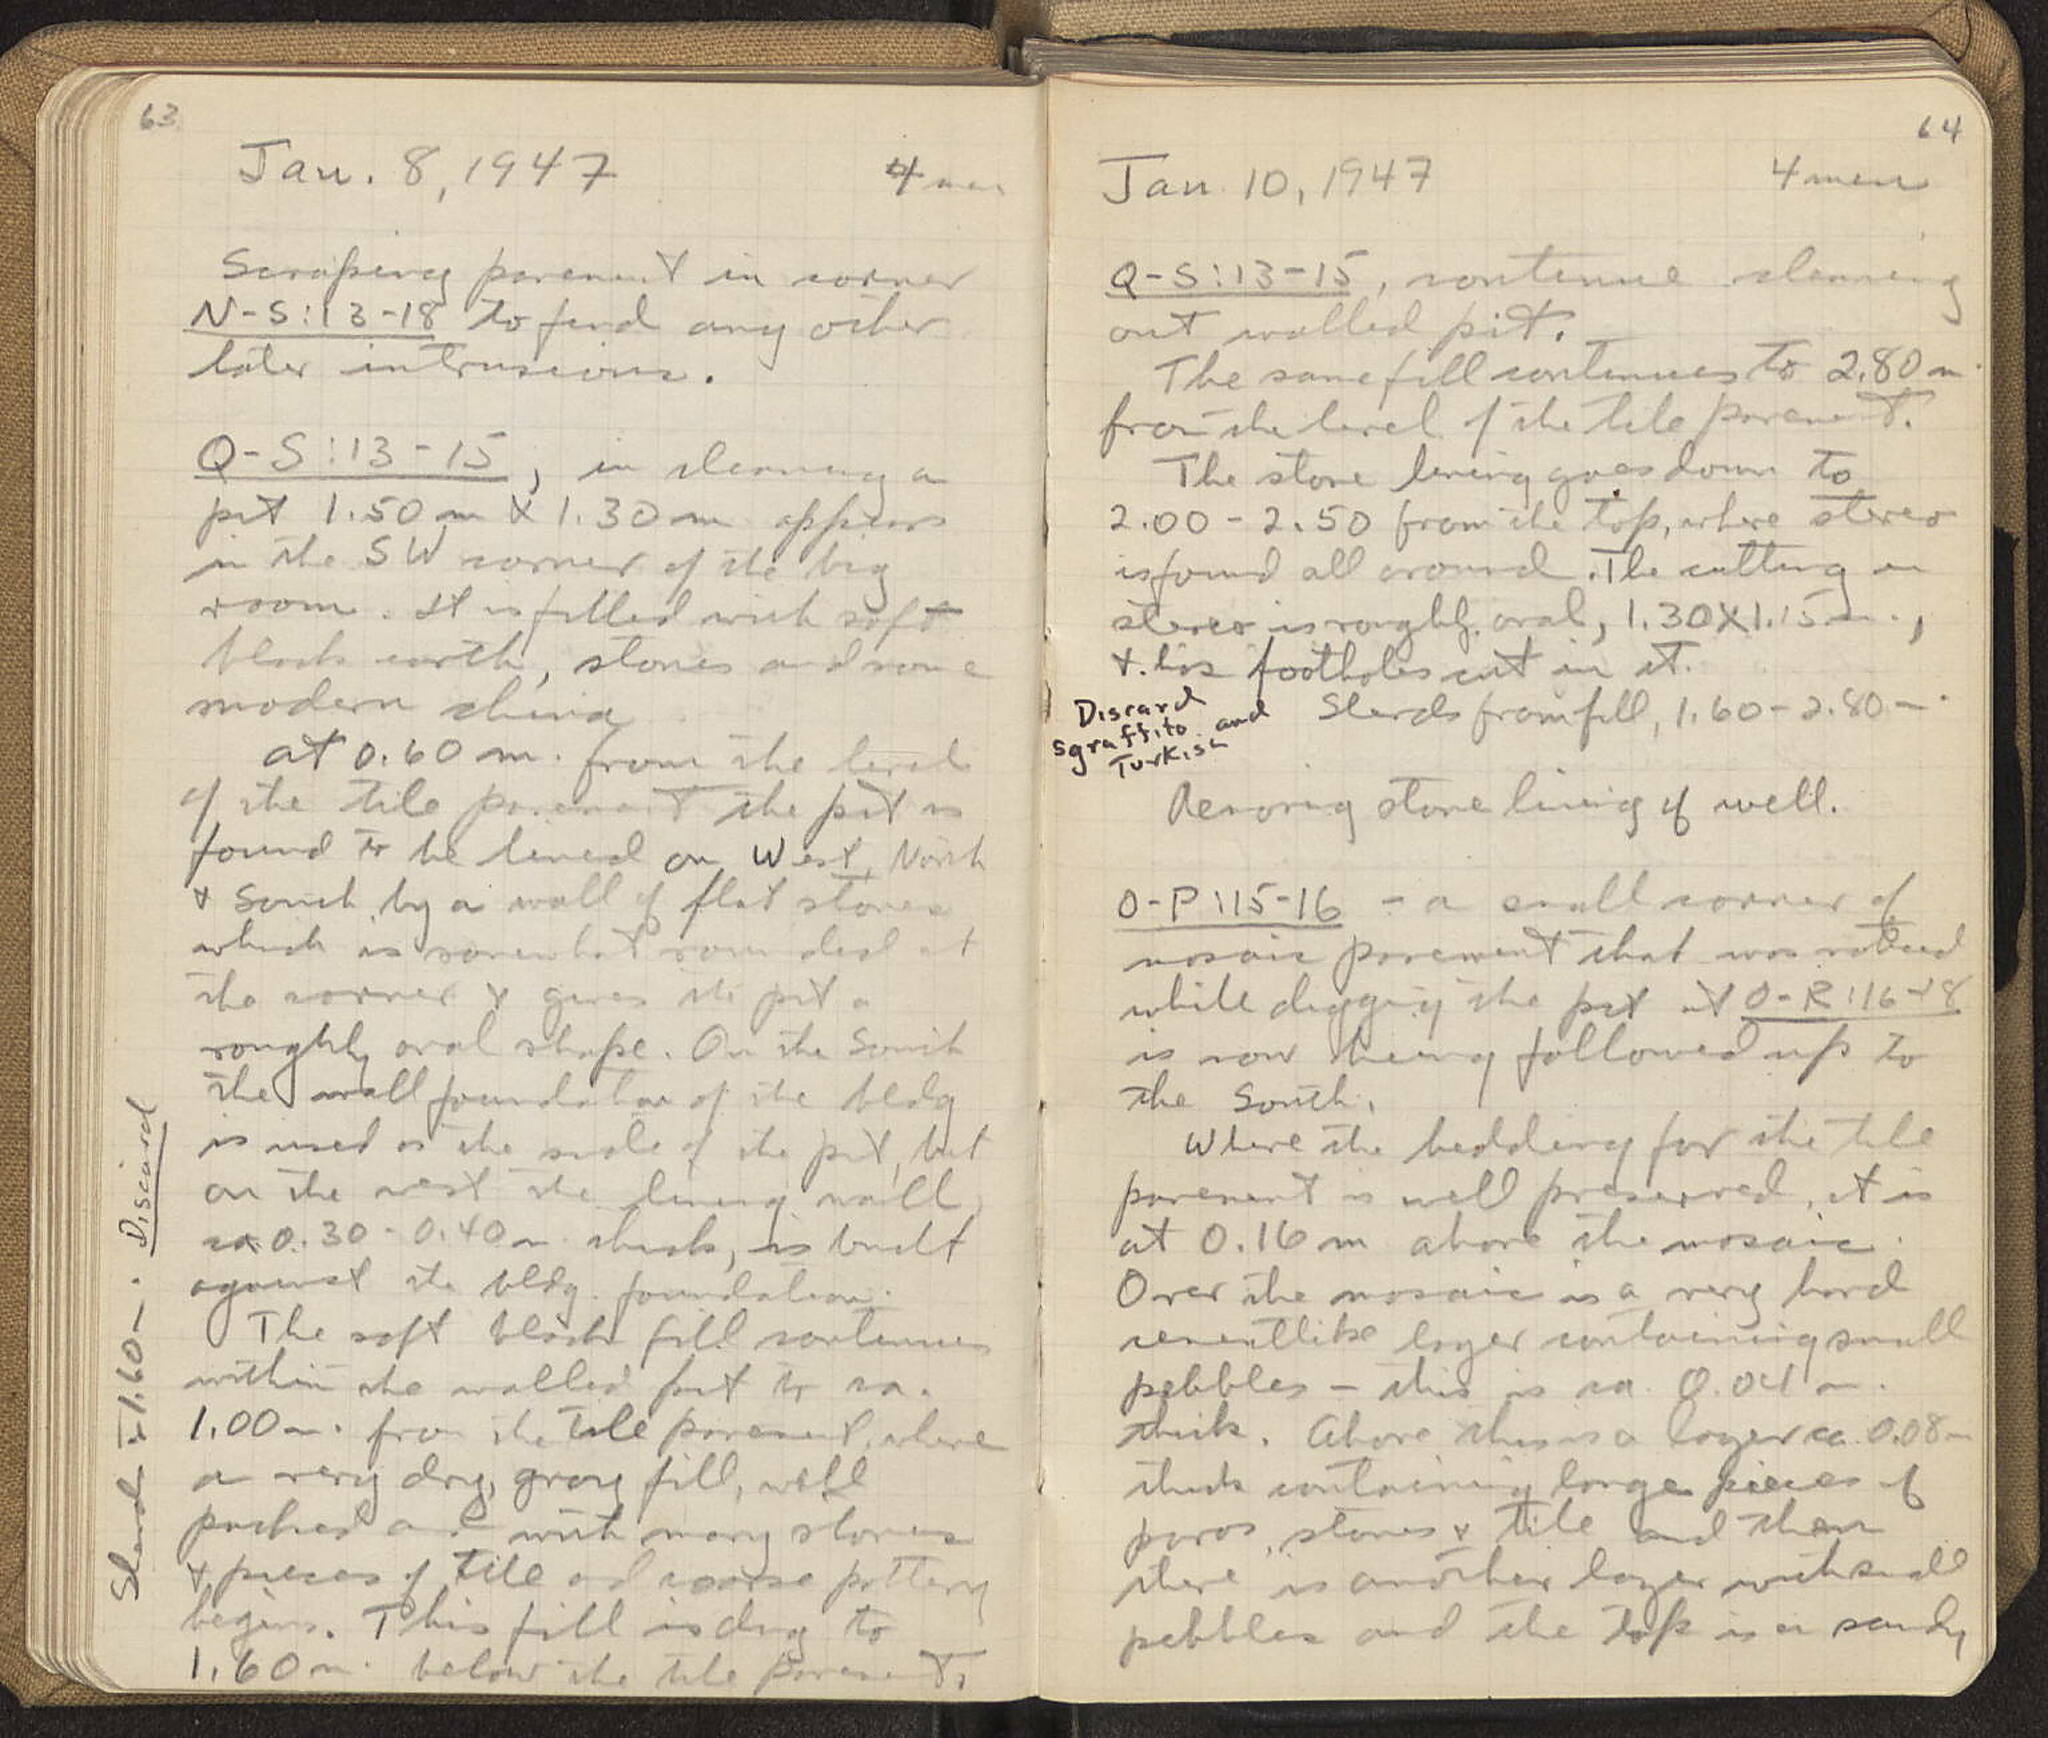 63
Jan. 8, 1947 4 men
Scraping pavement in corner
N-S:13-18 to find any other
later intrusions.
Q-S:13-15, in cleaning a
pit 1.50 m X 1.30 m appears
in the SW corner of the big
room. It is filled with soft
black earth, stones and some
modern china
at 0.60 m. from the level
of the tile pavement the pit is
found to be lined on West, North
& South by a wall of flat stones
which is somewhat rounded at
the corner & gives the pit a
roughly oval shape. On the South
the wall foundation of the bldg
is used as the side of the pit, but
on the west the lining wall,
ca 0.30-0.40 m thick, is built
against the bldg. foundation.
The soft black fill continues
within the walled pit to ca.
1.00 m. from the tile pavement, where
a very dry, gray fill, well
packed and with many stones
& pieces of tile and coarse pottery
begins. This fill is dug to
1.60 m. below the tile pavement.
Sherds to 1.60 m. Discard
64
Jan 10, 1947 4 men
Q-S:13-15, continue cleaning
out walled pit.
The same fill continues to 2.80 m.
from the level of the tile pavement.
The stone lining goes down to
2.00-2.50 from the top, where stereo
is found all around. The cutting in
stereo is roughly oval, 1.30X1.15 m.,
& has footholes cut in it.
Sherds from fill, 1.60-2.80 m.
Discard
sgraffito and
Turkish
Removing stone lining of well.
O-P:15-16 - a small corner of
mosaic pavement that was noticed
while digging the pit at O-R:16-18
is now being followed up to
the South.
Where the bedding for the tile
pavement is well preserved, it is
at 0.16 m above the mosaic.
Over the mosaic is a very hard
cementlike layer containing small
pebbles - this is ca. 0.04 m.
thick. Above this is a layer ca. 0.08 m
thick containing large pieces of
poros, stones & tile and then
there is another layer with small
pebbles and the top is a sandy